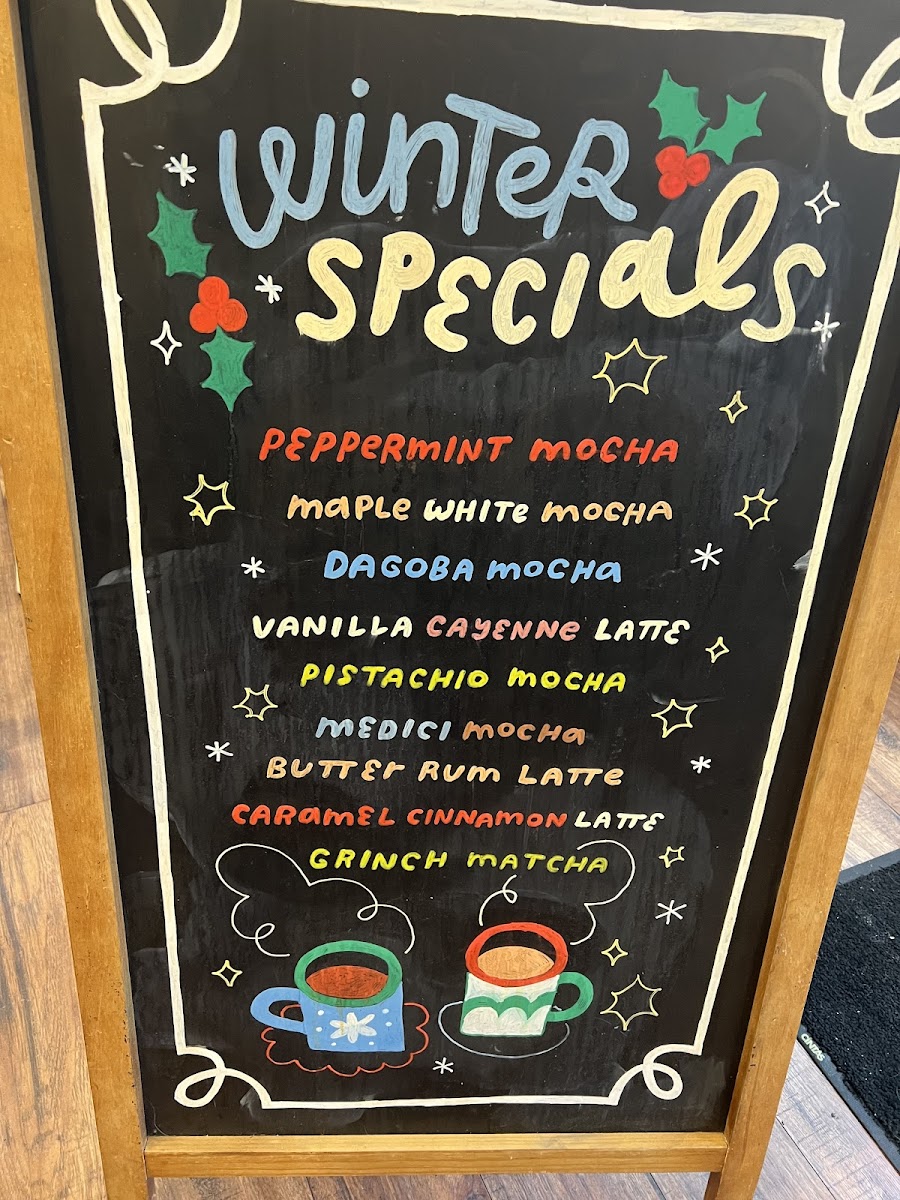 WinTeR
SPECIalS
PEPPeRmINT MOCHA
maPLe WHITe MOCHA
DAGOBA mOCHa
VANILLA CAYENNe LATTE
PISTACHIO MOCHA
MEDICI mOCHa
BUTTEr RUM LATTe
CARamEL CINNAMON LATTE
GRINCH MATCHA
CINTAS